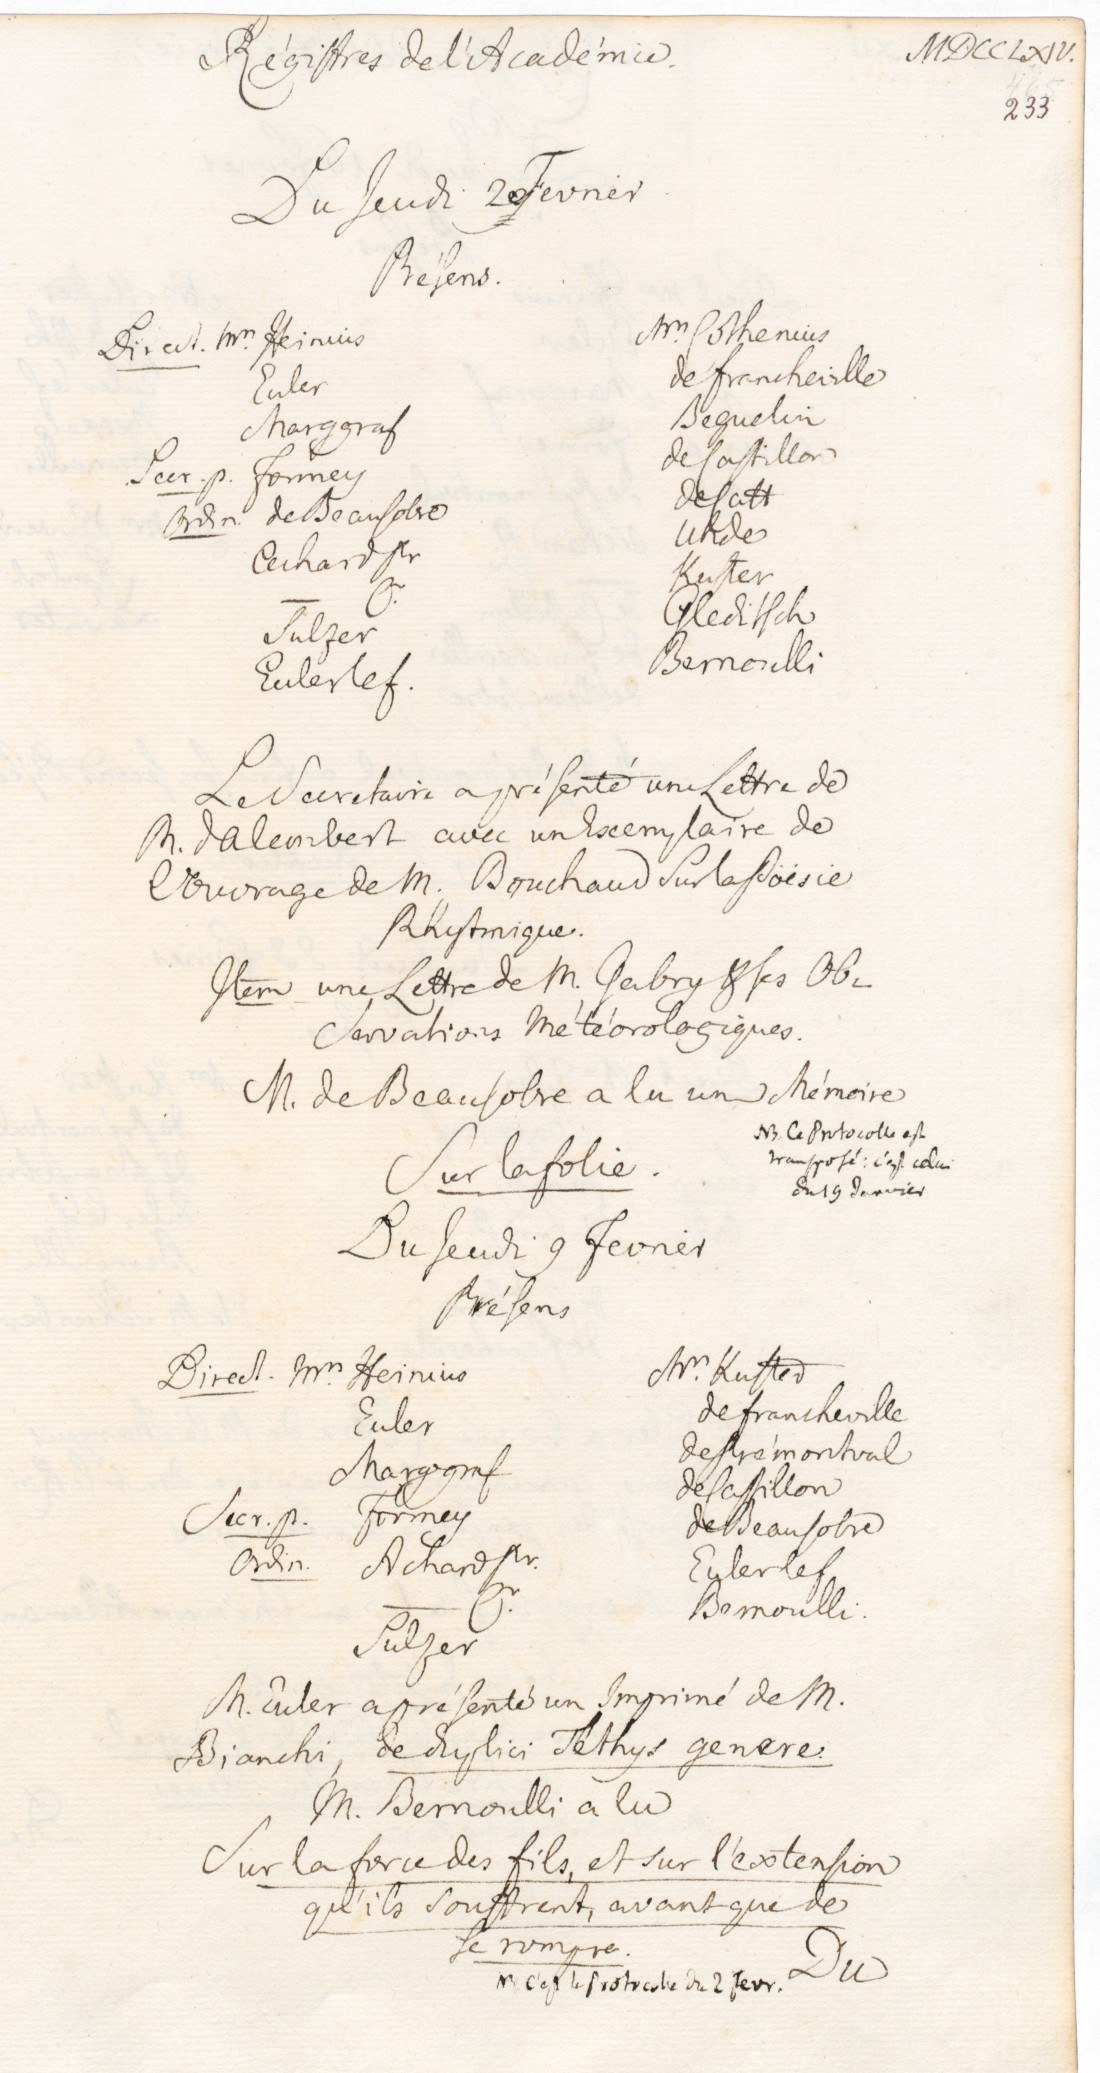 Régistres de l'Académie.
MDCCLXIV.
233
Du Jeudi 2e Fevrier
Présens.
Direct. Mrs Heinius
Euler
Marggraf
Secr. p. Formey
Ordin. de Beausobre
Achard Pr
— Cr.
Sulzer
Euler le f.
Mrs Cothenius
de Francheville
Beguelin
de Castillon
de Catt
Uhde
Kuster
Gleditsch
Bernoulli
Le Secretaire a présenté une Lettre de
M. d'Alembert avec un Exemplaire de
l'Ouvrage de M. Bouchaud Sur la Poësie
Rhytmique.
Item une Lettre de M. Gabry & ses Ob-
servations Météorologiques.
M. de Beausobre a lu un Mémoire
Sur la folie.
NB. Ce Protocolle est
transposé: c'est celui
du 19 Janvier
Du Jeudi 9 Fevrier
Présens
Direct. Mrs Heinius
Euler
Marggraf
Secr. p. Formey
Ordin. Achard Pr.
— Cr.
Sulzer
Mrs Kuster
de Francheville
de Prémontval
de Castillon
de Beausobre
Euler le f.
Bernoulli.
M. Euler a présenté un Imprimé de M.
Bianchi, de duplici Tethys genere.
M. Bernoulli a lu
Sur la force des fils, et sur l'extension
qu'ils souffrent, avant que de
se rompre.
NB. C'est le Protocolle du 2 Fevr.
Du